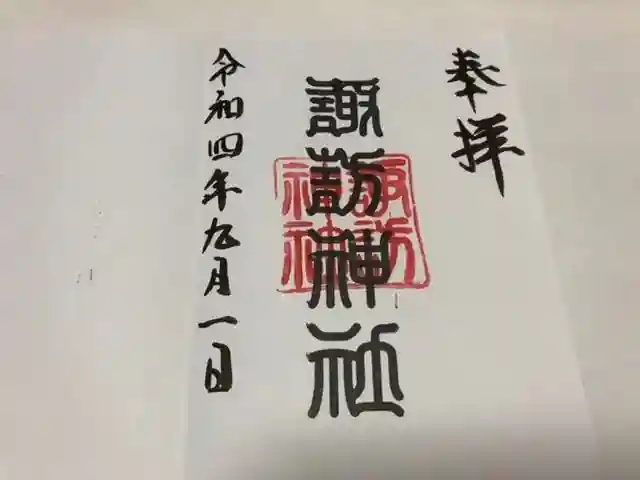 奉拝
諏訪神社
諏訪
神社
令和四年九月一日